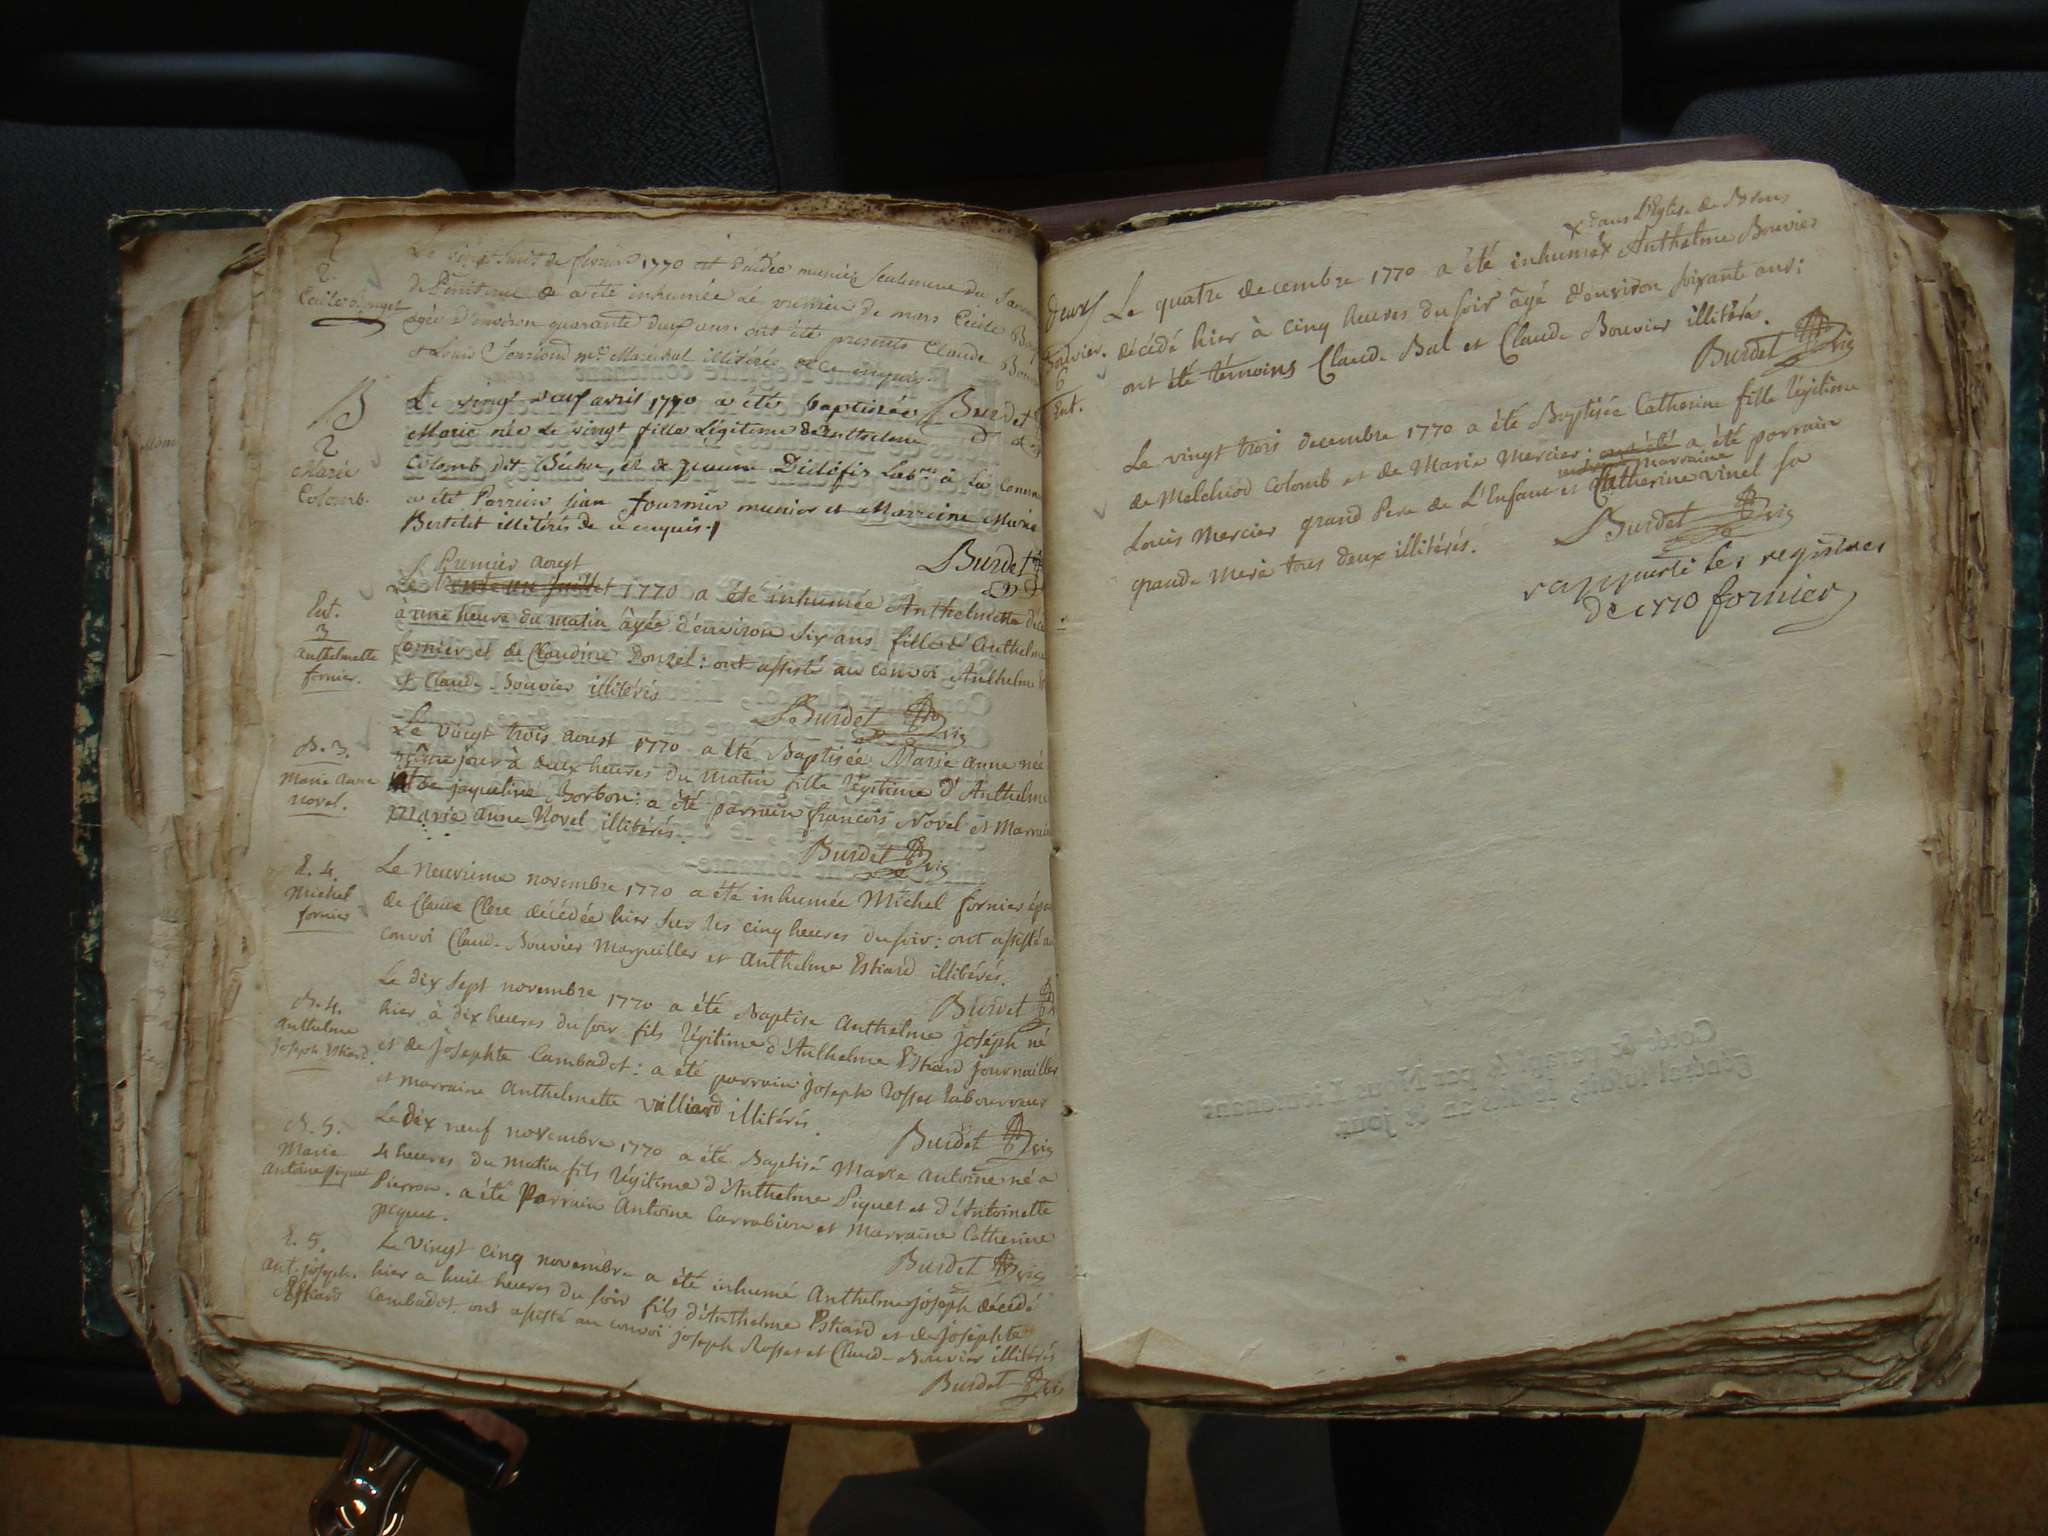 2
Cecile
Le vingt huit de fevrier 1770 est décédée munie seulement du Sacrem
de Penitence & a été inhumée Le premier de mars Cecile
agée d'environ quarante deux ans. ont été presents Claude Bouvier
et Louis me Maréchal illitérés de ce enquis.
B
2
Marie
Colomb.
Le vingt neuf avril 1770 a été baptisée Burdet
Marie née Le vingt fille Légitime d'Anthelme
Colomb dit et de Labr. à La
a été Parrain jean fournier munier et Marraine Marie
Bertelet illitérés de ce enquis.
Burdet
Premier aoust
Ent.
3
Anthelmette
fornier.
Le trente un juillet 1770 a été inhumée Anthelmette
à une heure du matin âgée d'environ six ans fille d'Anthelme
fornier et de Claudine Donzel: ont assisté au convoi Anthelme
et Claude Bouvier illitérés
Burdet
B. 3.
Marie anne
novel.
Le vingt trois aoust 1770 a été Baptisée Marie anne née
même jour à deux heures du matin fille légitime d'Anthelme
et de jaqueline Borbon: a été parrain françois Novel et Marraine
Marie anne Novel illitérés.
Burdet
E. 4.
Michel
fornier
Le neuvième novembre 1770 a été inhumée Michel fornier
de Claude Clere décédée hier sur les cinq heures du soir: ont assisté au
convoi Claude Bouvier Marguiller et Anthelme Estiard illitérés.
Burdet
B. 4.
Anthelme
Joseph Estiard
Le dix sept novembre 1770 a été Baptisé Anthelme joseph né
hier à dix heures du soir fils légitime d'Anthelme Estiard journailler
et de Josephte Cambadet: a été parrain joseph rosset laboureur
et marraine Anthelmette villiard illitérés.
Burdet
B. 5.
Marie
Antoine piquet
Le dix neuf novembre 1770 a été Baptisé Marie Antoine né a
4 heures du matin fils légitime d'Anthelme Piquet et d'Antoinette
Pierron. a été Parrain Antoine Carrabion et Marraine Catherine
piquet.
Burdet
E. 5.
Ant. joseph.
Estiard
Le vingt cinq novembre a été inhumé Anthelme joseph décédé
hier a huit heures du soir fils d'Anthelme Estiard et de josephte
Cambadet. ont assisté au convoi joseph Rosset et Claude Bouvier illitérés
Burdet
x dans L'Eglise de Brens
Bouvier.
6
Ent.
Le quatre decembre 1770 a été inhumé x Anthelme Bouvier
décédé hier à cinq heures du soir âgé d'environ soixante ans:
ont été témoins Claude Bal et Claude Bouvier illitérés.
Burdet
Le vingt trois decembre 1770 a été Baptisée Catherine fille légitime
de Melchiod Colomb et de Marie Mercier: a été parrain
marraine
Louis Mercier grand Pere de L'Enfant et Catherine vinel sa
grande mere tous deux illitérés.
Burdet
rapporté les registres
de 1770 fornier
Cotté & paraphé par Nous Lieutenant
général susdit, lesdits an & jour